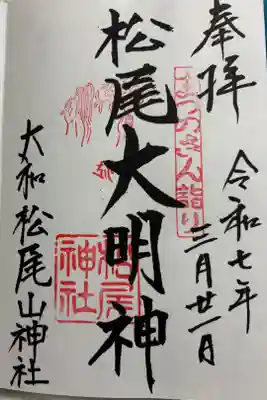 奉拝
まつのさん詣り
令和七年
三月廿一日
松尾大明神
松尾神社
大和松尾山神社